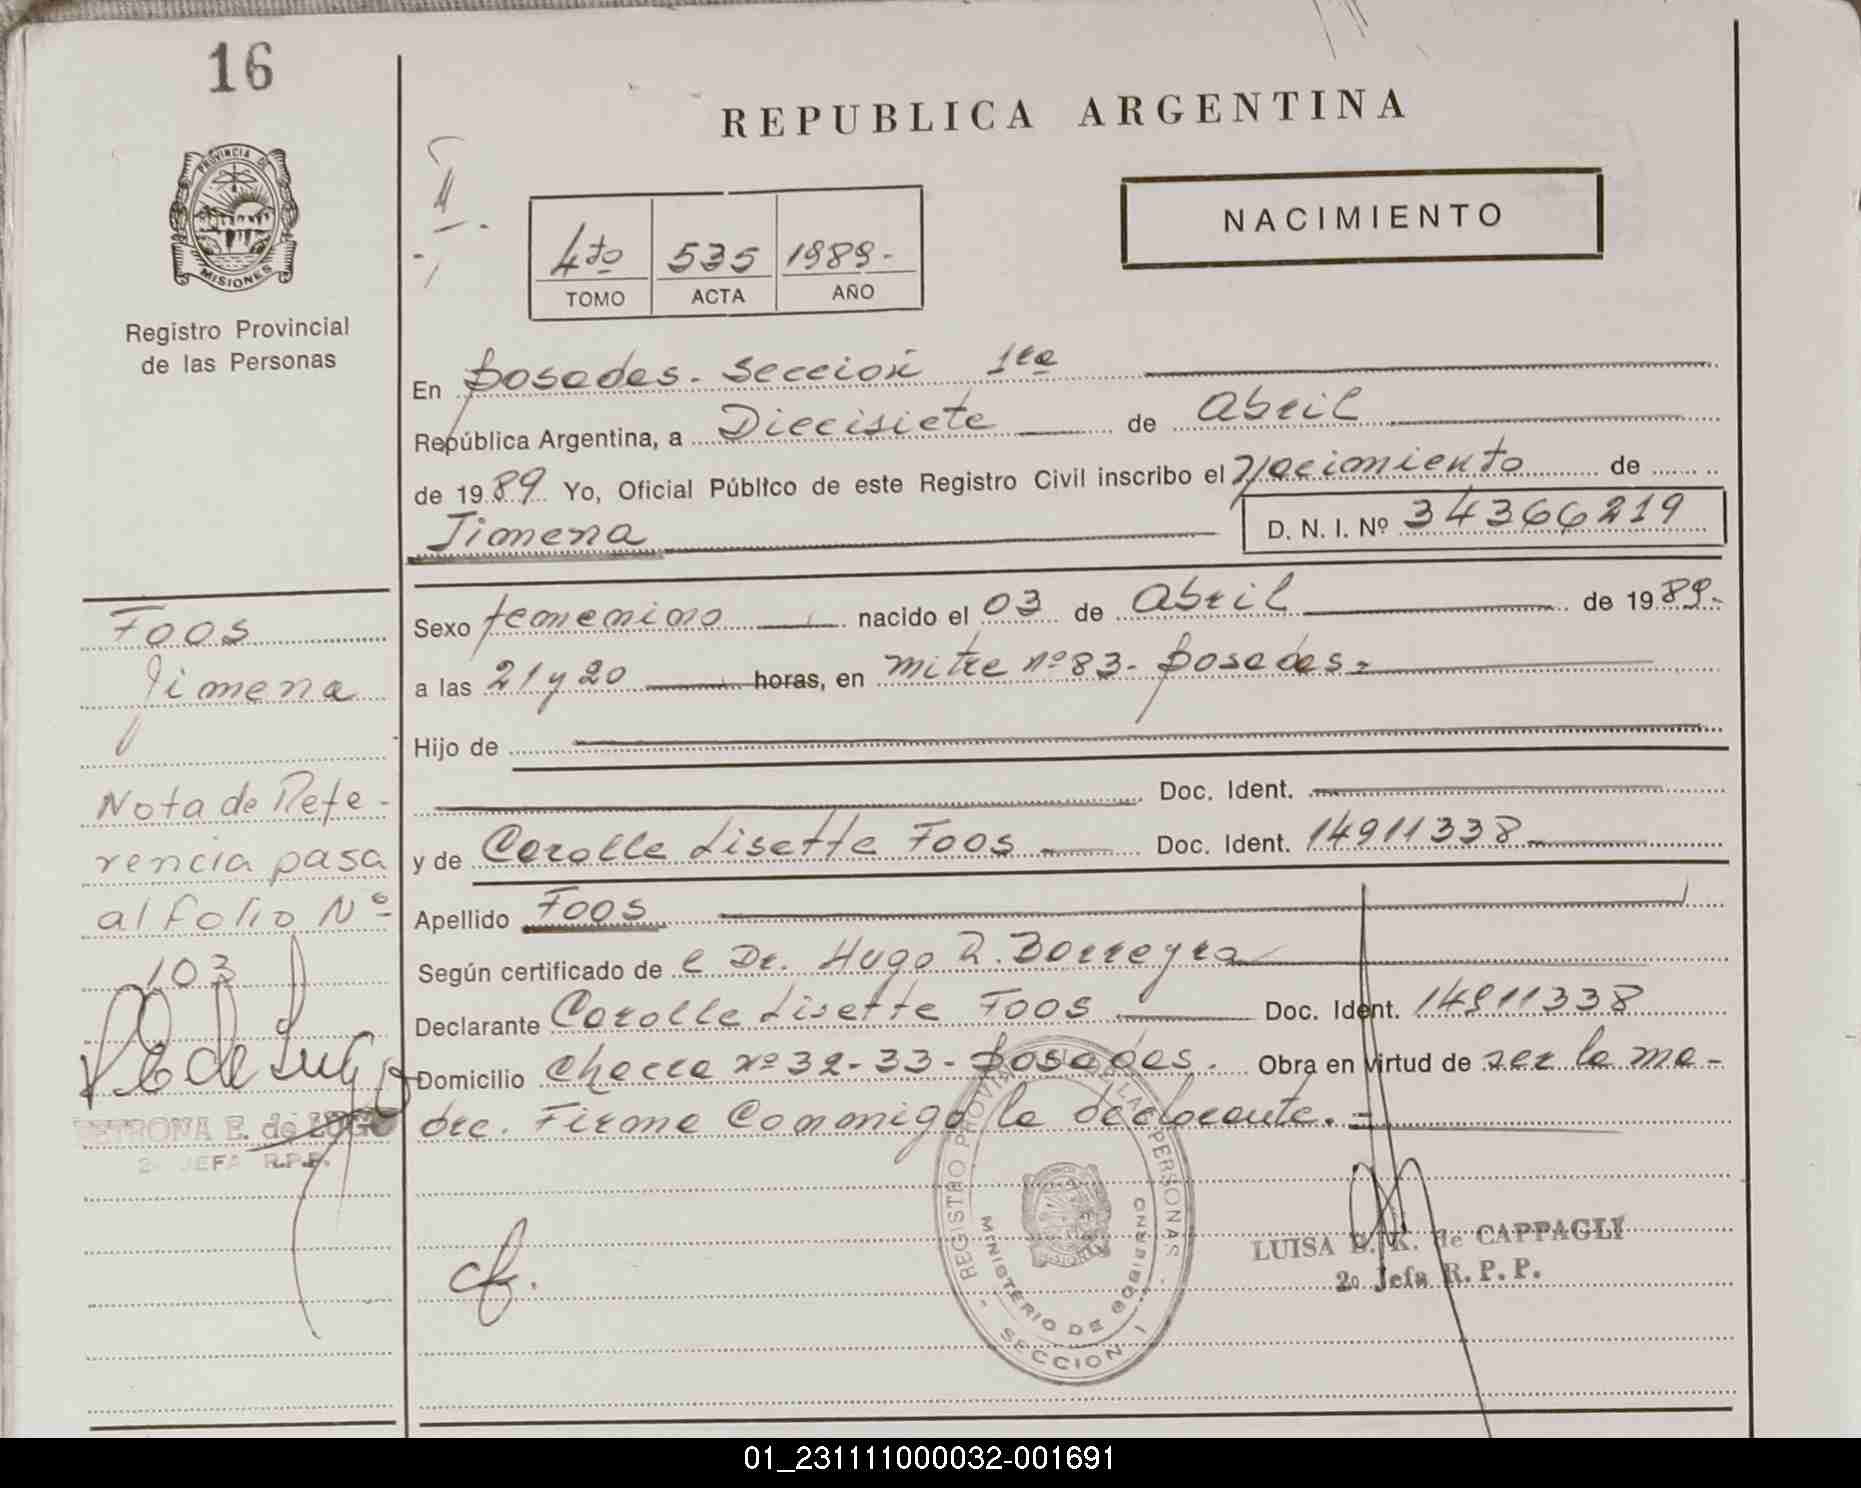 16
REPUBLICA ARGENTINA
PROVINCIA DE
MISIONES
Registro Provincial
de las Personas
4to 535 1989.-
TOMO ACTA AÑO
NACIMIENTO
En Posadas. Sección 1ra
República Argentina, a Diecisiete de Abril
de 1989 Yo, Oficial Público de este Registro Civil inscribo el Nacimiento de
Jimena D. N. I. Nº 34366219
Sexo femenino nacido el 03 de Abril de 1989.-
a las 21 y 20 horas, en mitre nº 83 - Posadas.-
Hijo de
Doc. Ident.
y de Carolle Lisette Foos Doc. Ident. 14911338
Apellido Foos
Según certificado de el Dr. Hugo R. Borreyra
Declarante Carolle Lisette Foos Doc. Ident. 14911338
Domicilio Chacra nº 32-33- Posadas. Obra en virtud de ser la ma-
dre. Firma Conmigo la declarante.=
Foos
Jimena
Nota de Refe-
rencia pasa
al folio Nº
103
PETRONA E. de LUGO
2o JEFA R.P.P.
REGISTRO PROVINCIAL DE LAS PERSONAS
MINISTERIO DE GOBIERNO
SECCION I
LUISA K. de CAPPAGLI
2o Jefa R. P. P.
01_231111000032-001691